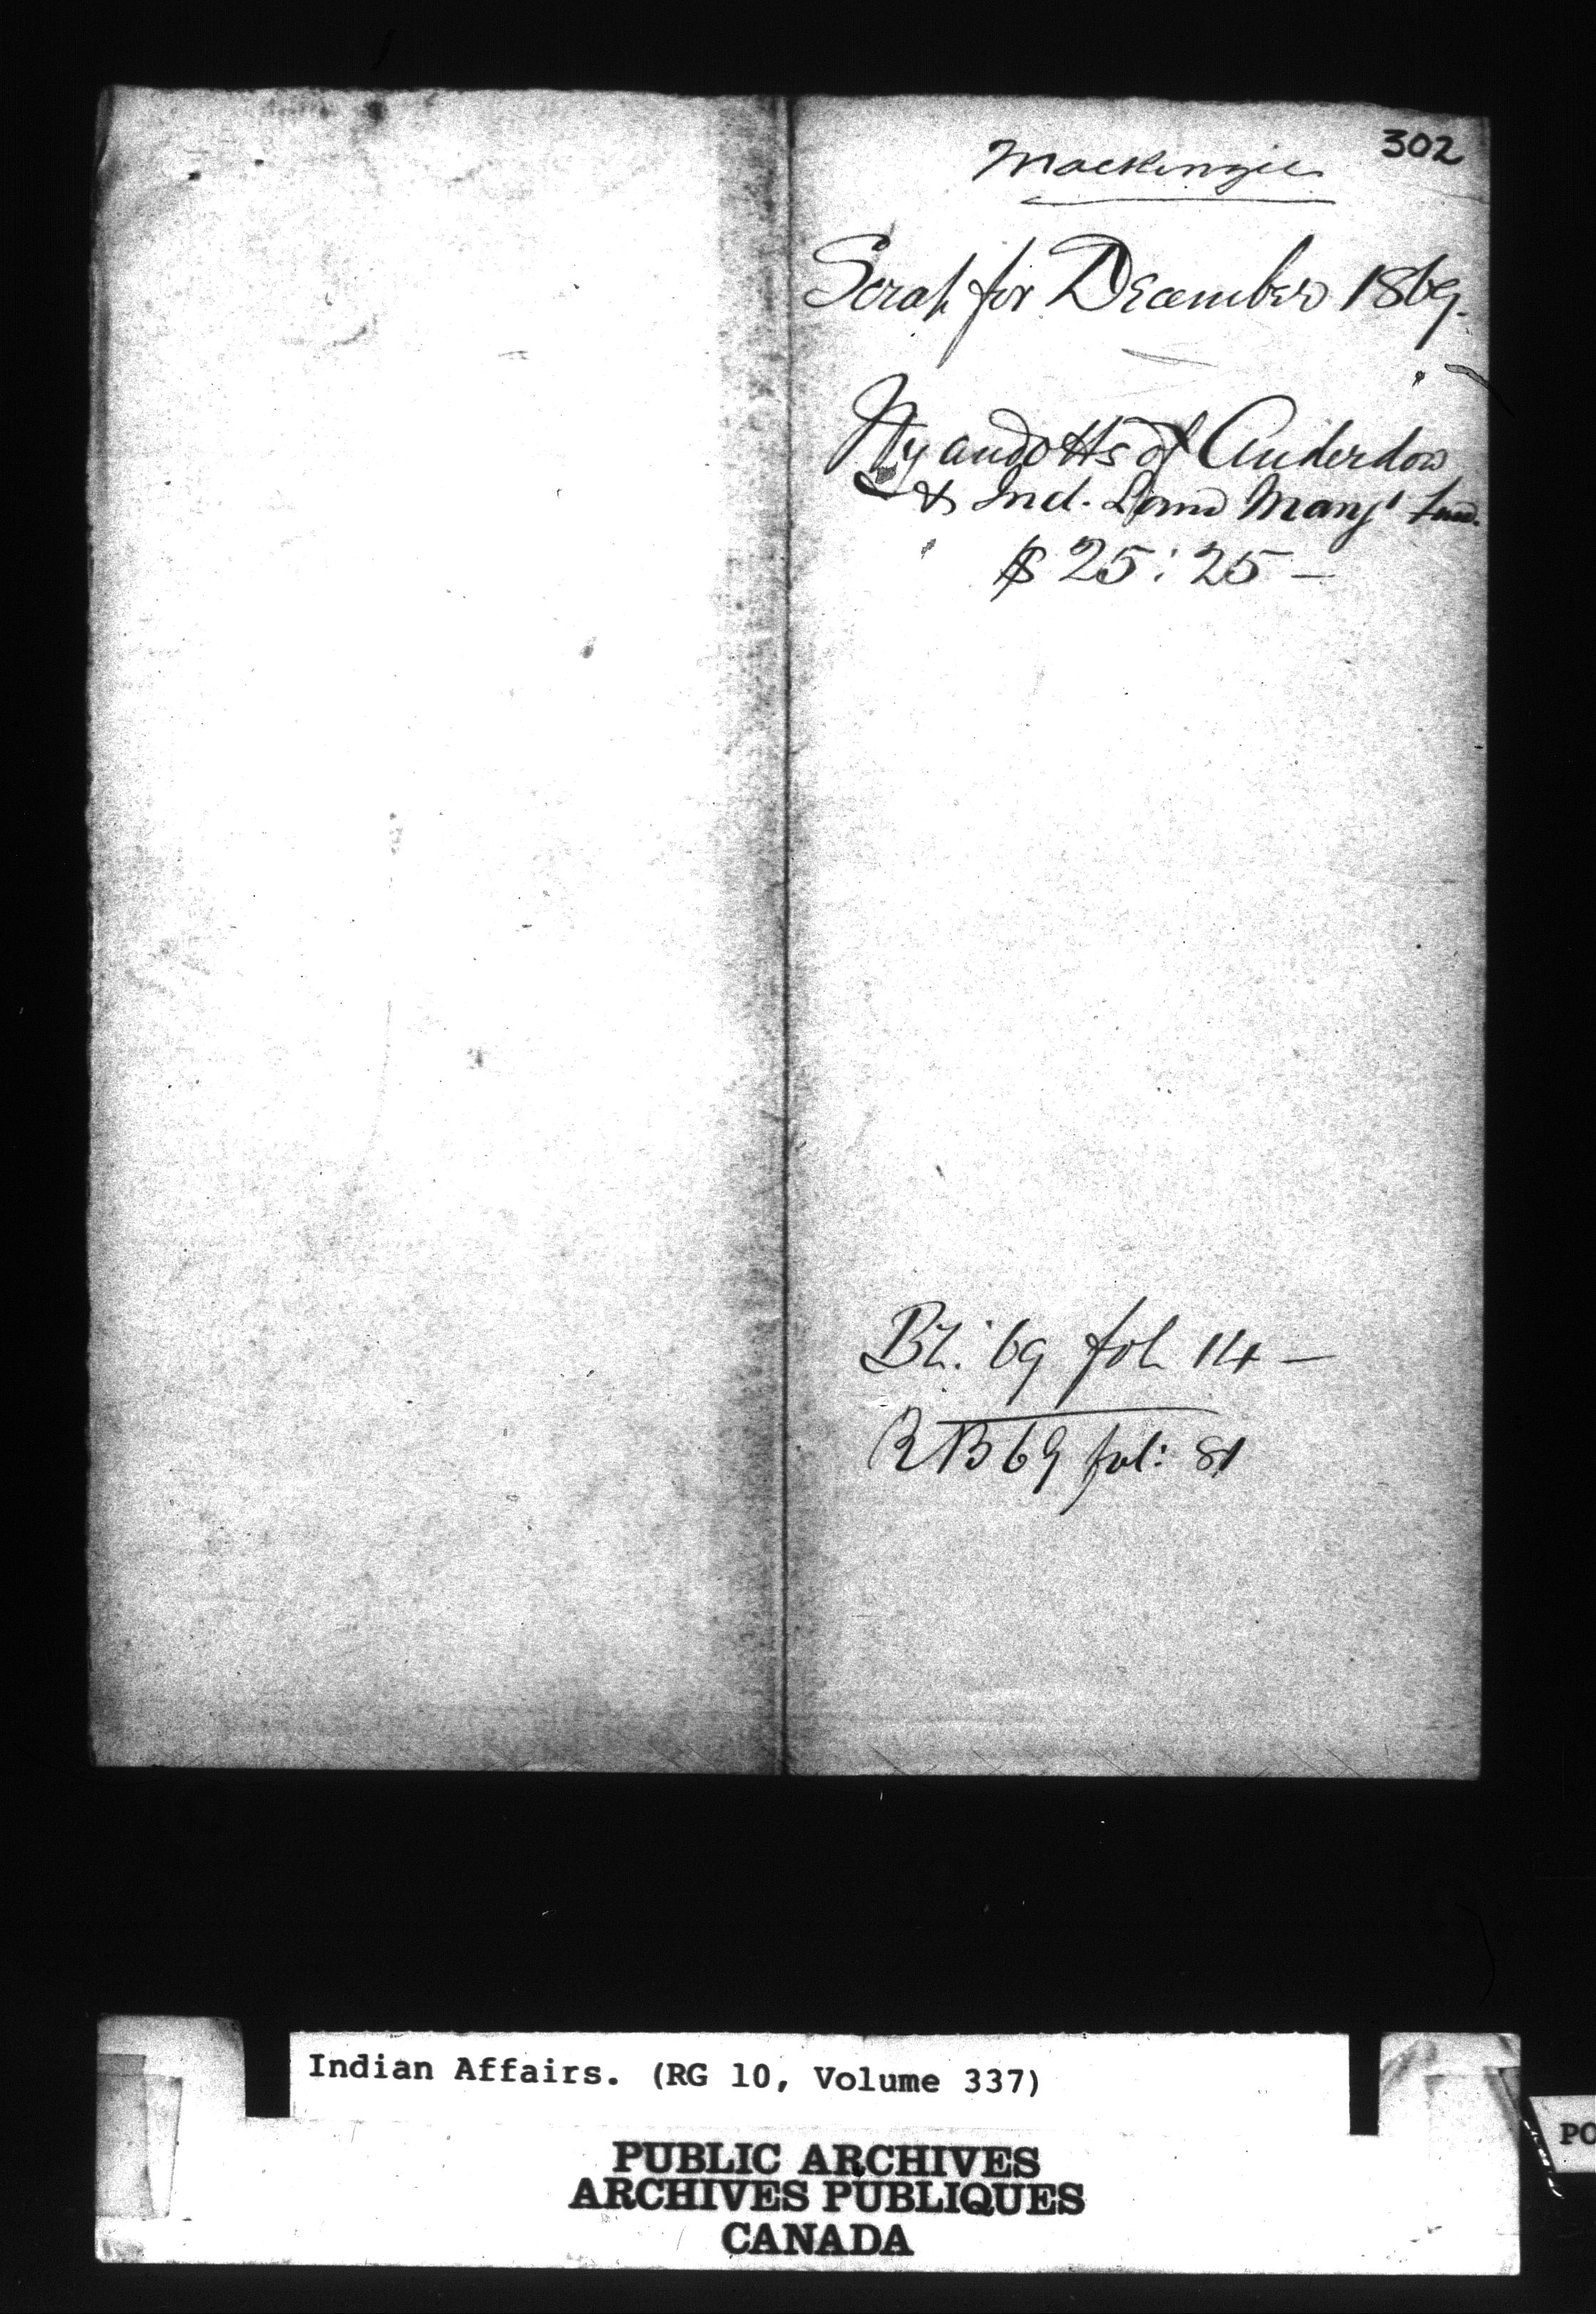 302
Mackenzie
Scrap for December 1869.
Wyandotts of Anderdon
& Ind. Land Mangt Fund.
$ 25:25 —
Bk: 69 fol. 14 —
RB 69 fol: 81
Indian Affairs. (RG 10, Volume 337)
PUBLIC ARCHIVES
ARCHIVES PUBLIQUES
CANADA
PO